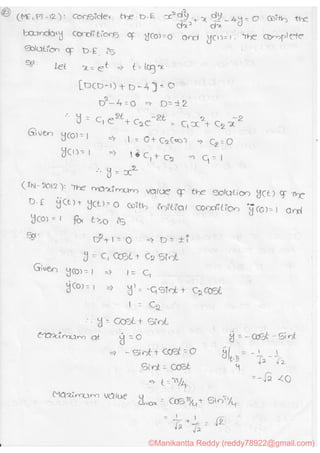 (ME, PI-12): Consider the D.E x² d²y/dx² + x dy/dx - 4y = 0 with the
boundary conditions of y(0)=0 and y(1)=1. The complete
solution of D.E is
Sol: let x = e^t ⇒ t = log x
[D(D-1) + D - 4] = 0
D² - 4 = 0 ⇒ D = ±2
∴ y = C₁ e^2t + C₂ e^-2t = C₁x² + C₂ x^-2
Given y(0) = 1 ⇒ 1 = 0 + C₂(∞) ⇒ C₂ = 0
y(1) = 1 ⇒ 1 = C₁ + C₂ ⇒ C₁ = 1
∴ y = x²
(IN-2012): The maximum value of the solution y(t) of the
D.E ÿ(t) + y(t) = 0 with initial condition ẏ(0)=1 and
y(0) = 1 for t≥0 is
Sol: D² + 1 = 0 ⇒ D = ±i
y = C₁ cost + C₂ sint
Given y(0) = 1 ⇒ 1 = C₁
ẏ(0) = 1 ⇒ y' = -C₁ sint + C₂ cost
1 = C₂
∴ y = cost + sint
Maximum at ẏ = 0 ÿ = -cost - sint
⇒ -sint + cost = 0
sint = cost
= -√2 < 0
⇒ t = π/4
Maximum value y max = cos π/4 + sin π/4
= 1/√2 + 1/√2 = √2
©Manikantta Reddy (reddy78922@gmail.com)